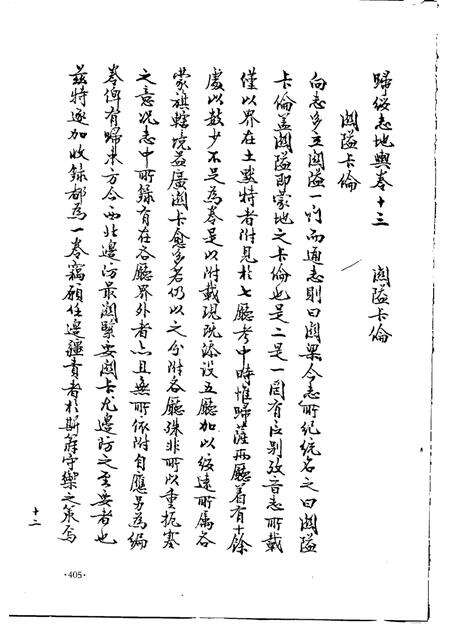 歸綏志地輿卷十三 關隘卡倫
關隘卡倫
向志多立關隘一門而通志則曰關梁今志所紀統名之曰關隘
卡倫蓋關隘即蒙地之卡倫也是二是一罔有區別攷吾志所載
僅以界在土默特者附見於七廳考中時惟歸薩兩廳着有十餘
處以數少不足為卷是以附載現既添設五廳加以綏遠所屬各
蒙旗轄境益廣關卡愈多若仍以之分附各廳殊非所以重扼塞
之意況志中所錄有在各廳界外者亦且無所依附自應另為編
卷俾有歸束方合西北邊防最關緊要關卡尤邊防之至要者也
茲特逐加收錄都為一卷竊願任邊疆責者於斯籌守禦之策焉
十二
·405·